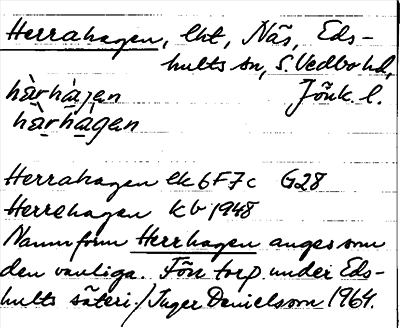 Herrahagen, lht, Näs, Eds-
hults sn, S. Vedbo hd,
hàrhàgen Jönk. l.
hàrhágen
Herrahagen ek 6F7c G28
Herrehagen Kb 1948
Namnform Herrhagen anges som
den vanliga. F.ö. torp under Eds-
hults säteri./Inger Danielsson 1964.